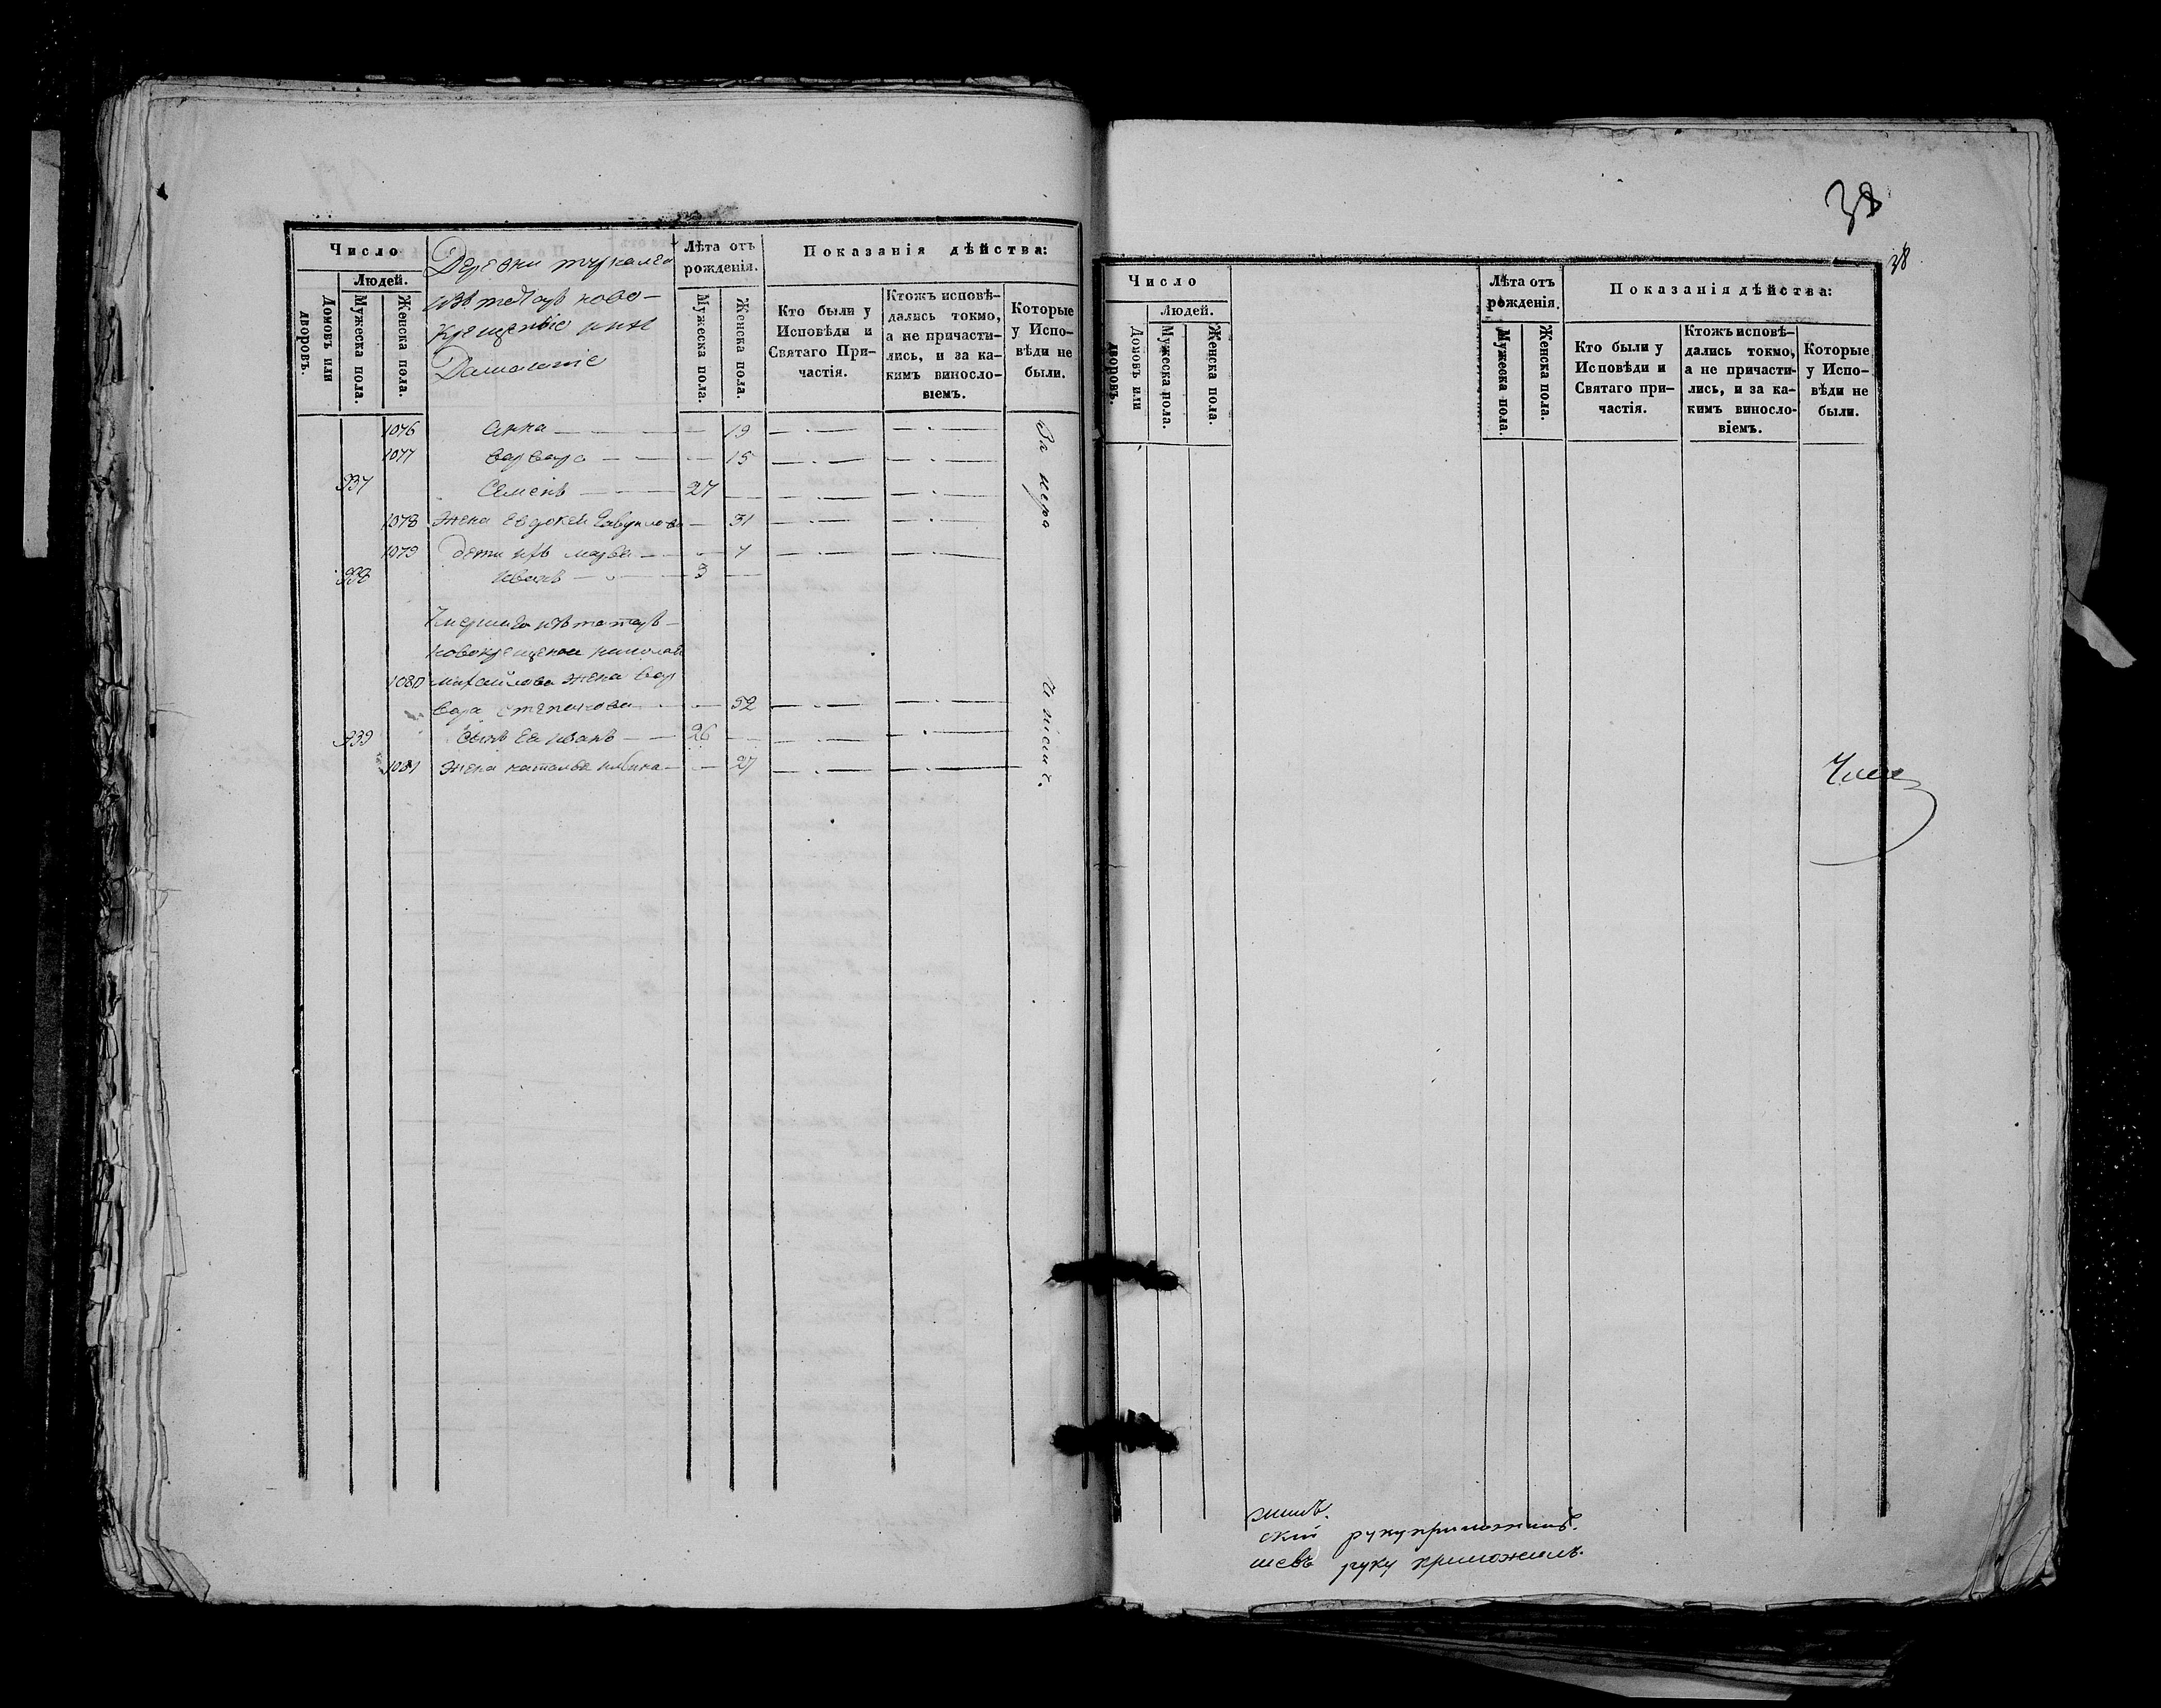 Число
Людей.
Домовъ или дворовъ.
Мужеска пола.
Женска пола.
Деревни
изъ татаръ ново-
крещеные ихъ
Домашніе
Лѣта отъ рожденія.
Мужеска пола.
Женска пола.
Показанія дѣйства:
Кто были у Исповѣди и Святаго Причастія.
Ктожъ исповѣдались токмо, а не причастились, и за какимъ винословіемъ.
Которые у Исповѣди не были.
1076 Анна 19
1077 Варвара 15
937 Семенъ 27
1078 Жена Евдокея 31
1079 Дети ихъ Марѳа 7
938 Иванъ 3
Умершаго изъ татаръ
новокрещенаго Николая
1080 Михайлова жена Вар
вара Степанова 52
939 Сынъ Ея Иванъ 26
1081 Жена Наталья 27
38
38
Число
Людей.
Домовъ или дворовъ.
Мужеска пола.
Женска пола.
Лѣта отъ рожденія.
Мужеска пола.
Женска пола.
Показанія дѣйства:
Кто были у Исповѣди и Святаго причастія.
Ктожъ исповѣдались токмо, а не причастились, и за какимъ винословіемъ.
Которые у Исповѣди не были.
ский руку приложилъ.
шевъ руку приложилъ.